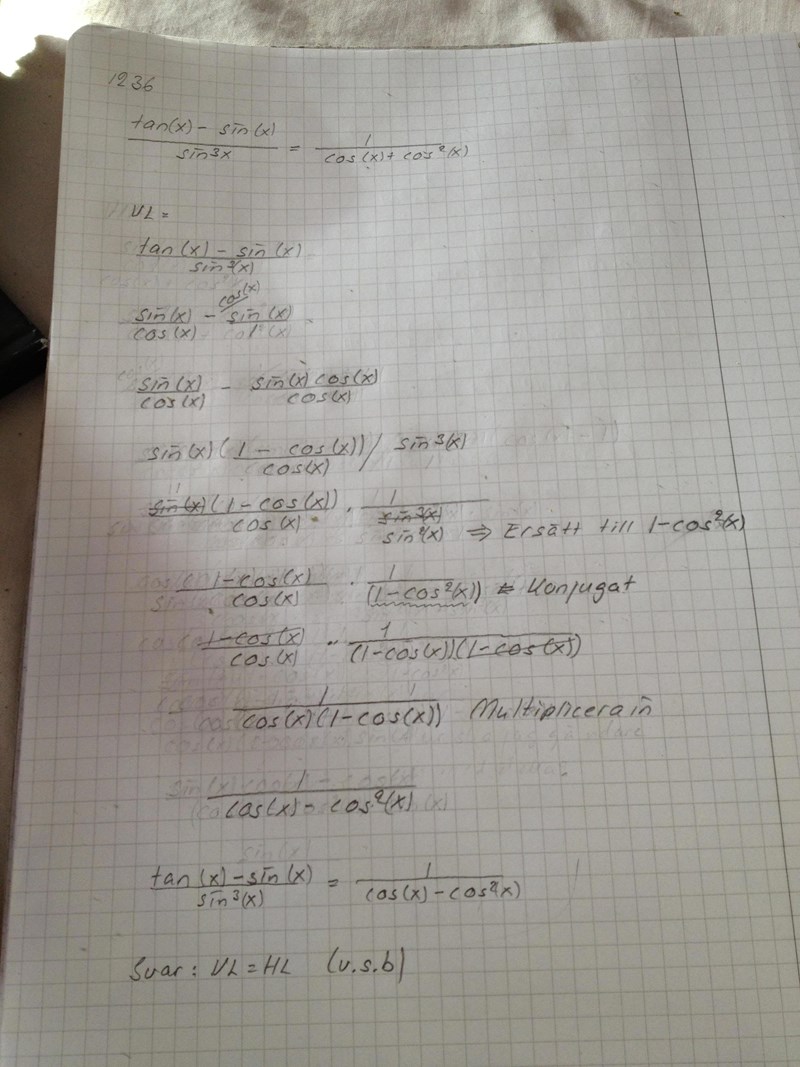 1236
tan(x) - sin(x) / sin3x = 1 / cos(x) + cos²(x)
VL =
tan(x) - sin(x) / sin³(x)
sin(x) / cos(x) - cos(x) / sin(x) / 1
sin(x) / cos(x) - sin(x) cos(x) / cos(x)
sin(x) (1 - cos(x)) / cos(x) / sin3(x)
sin(x) (1 - cos(x)) / cos(x) · 1 / sin3(x) sin²(x) ⇒ Ersätt till 1-cos²(x)
1-cos(x) / cos(x) · 1 / (1-cos²(x)) ⇐ Konjugat
1-cos(x) / cos(x) · 1 / (1-cos(x))(1-cos(x))
1 / cos(x)(1-cos(x)) Multiplicera in
1 / cos(x) - cos²(x)
tan(x) - sin(x) / sin³(x) = 1 / cos(x) - cos²(x)
Svar: VL = HL (v.s.b)